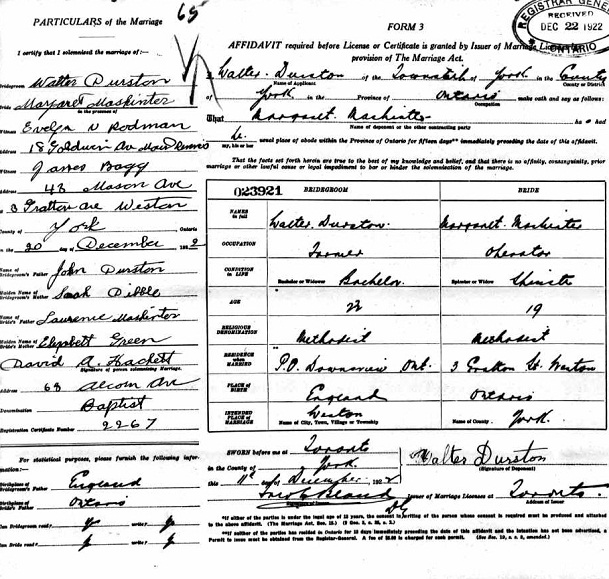 PARTICULARS of the Marriage
65
I certify that I solemnized the marriage of:-
Bridegroom Walter Durston
Bride Margaret Maskinter
in the presence of
Witness Evelyn N Rodman
Address 18 Goldwin Av Mount Dennis
Witness James Bagg
Address 43 Mason Ave
3 Gratton Ave Weston
County of York Ontario
on the 20 day of December 1922
Name of Bridegroom's Father John Durston
Maiden Name of Bridegroom's Mother Sarah Dibble
Name of Bride's Father Laurence Maskinter
Maiden Name of Bride's Mother Elizabeth Green
David A. Hackett
Signature of person solemnizing Marriage.
Address 68 Alcorn Ave
Denomination Baptist
Registration Certificate Number 2267
For statistical purposes, please furnish the following information
Birthplace of Bridegroom's Father England
Birthplace of Bride's Father Ontario
Can Bridegroom read write?
Can Bride read write?
REGISTRAR GENERAL
RECEIVED
DEC 22 1922
ONTARIO
FORM 3
AFFIDAVIT required before License or Certificate is granted by Issuer of Marriage Licenses
provision of The Marriage Act.
I, Walter Durston of the Township of York in the County
Name of Applicant County or District
of York in the Province of Ontario make oath and say as follows:
Occupation
That Margaret Maskinter has had
Name of deponent or the other contracting party
usual place of abode within the Province of Ontario for fifteen days** immediately preceding the date of this affidavit.
my, his or her
That the facts set forth herein are true to the best of my knowledge and belief, and that there is no affinity, consanguinity, prior
marriage or other lawful cause or legal impediment to bar or hinder the solemnization of the marriage.
023921 BRIDEGROOM BRIDE
NAMES in full Walter Durston Margaret Maskinter
OCCUPATION Farmer Operator
CONDITION IN LIFE Bachelor or Widower Bachelor Spinster or Widow Spinster
AGE 22 19
RELIGIOUS DENOMINATION Methodist Methodist
RESIDENCE when MARRIED P.O. Downsview Ont. 3 Gratton St. Weston
PLACE OF BIRTH England Ontario
INTENDED PLACE OF MARRIAGE Weston York.
Name of City, Town, Village or Township Name of County
SWORN before me at Toronto
in the County of York Walter Durston
(Signature of Deponent)
this day of December 1922
Issuer of Marriage Licenses at Toronto
Address of Issuer
*If either of the parties is under the legal age of 18 years, the consent in writing of the person whose consent is required must be produced and attached
to the above affidavit. (The Marriage Act, Sec. 15.)
**If neither of the parties has resided in Ontario for 15 days immediately preceding the date of this affidavit and the intention has not been advertised, a
Permit to issue must be obtained from the Registrar-General. A fee of is charged for each permit.